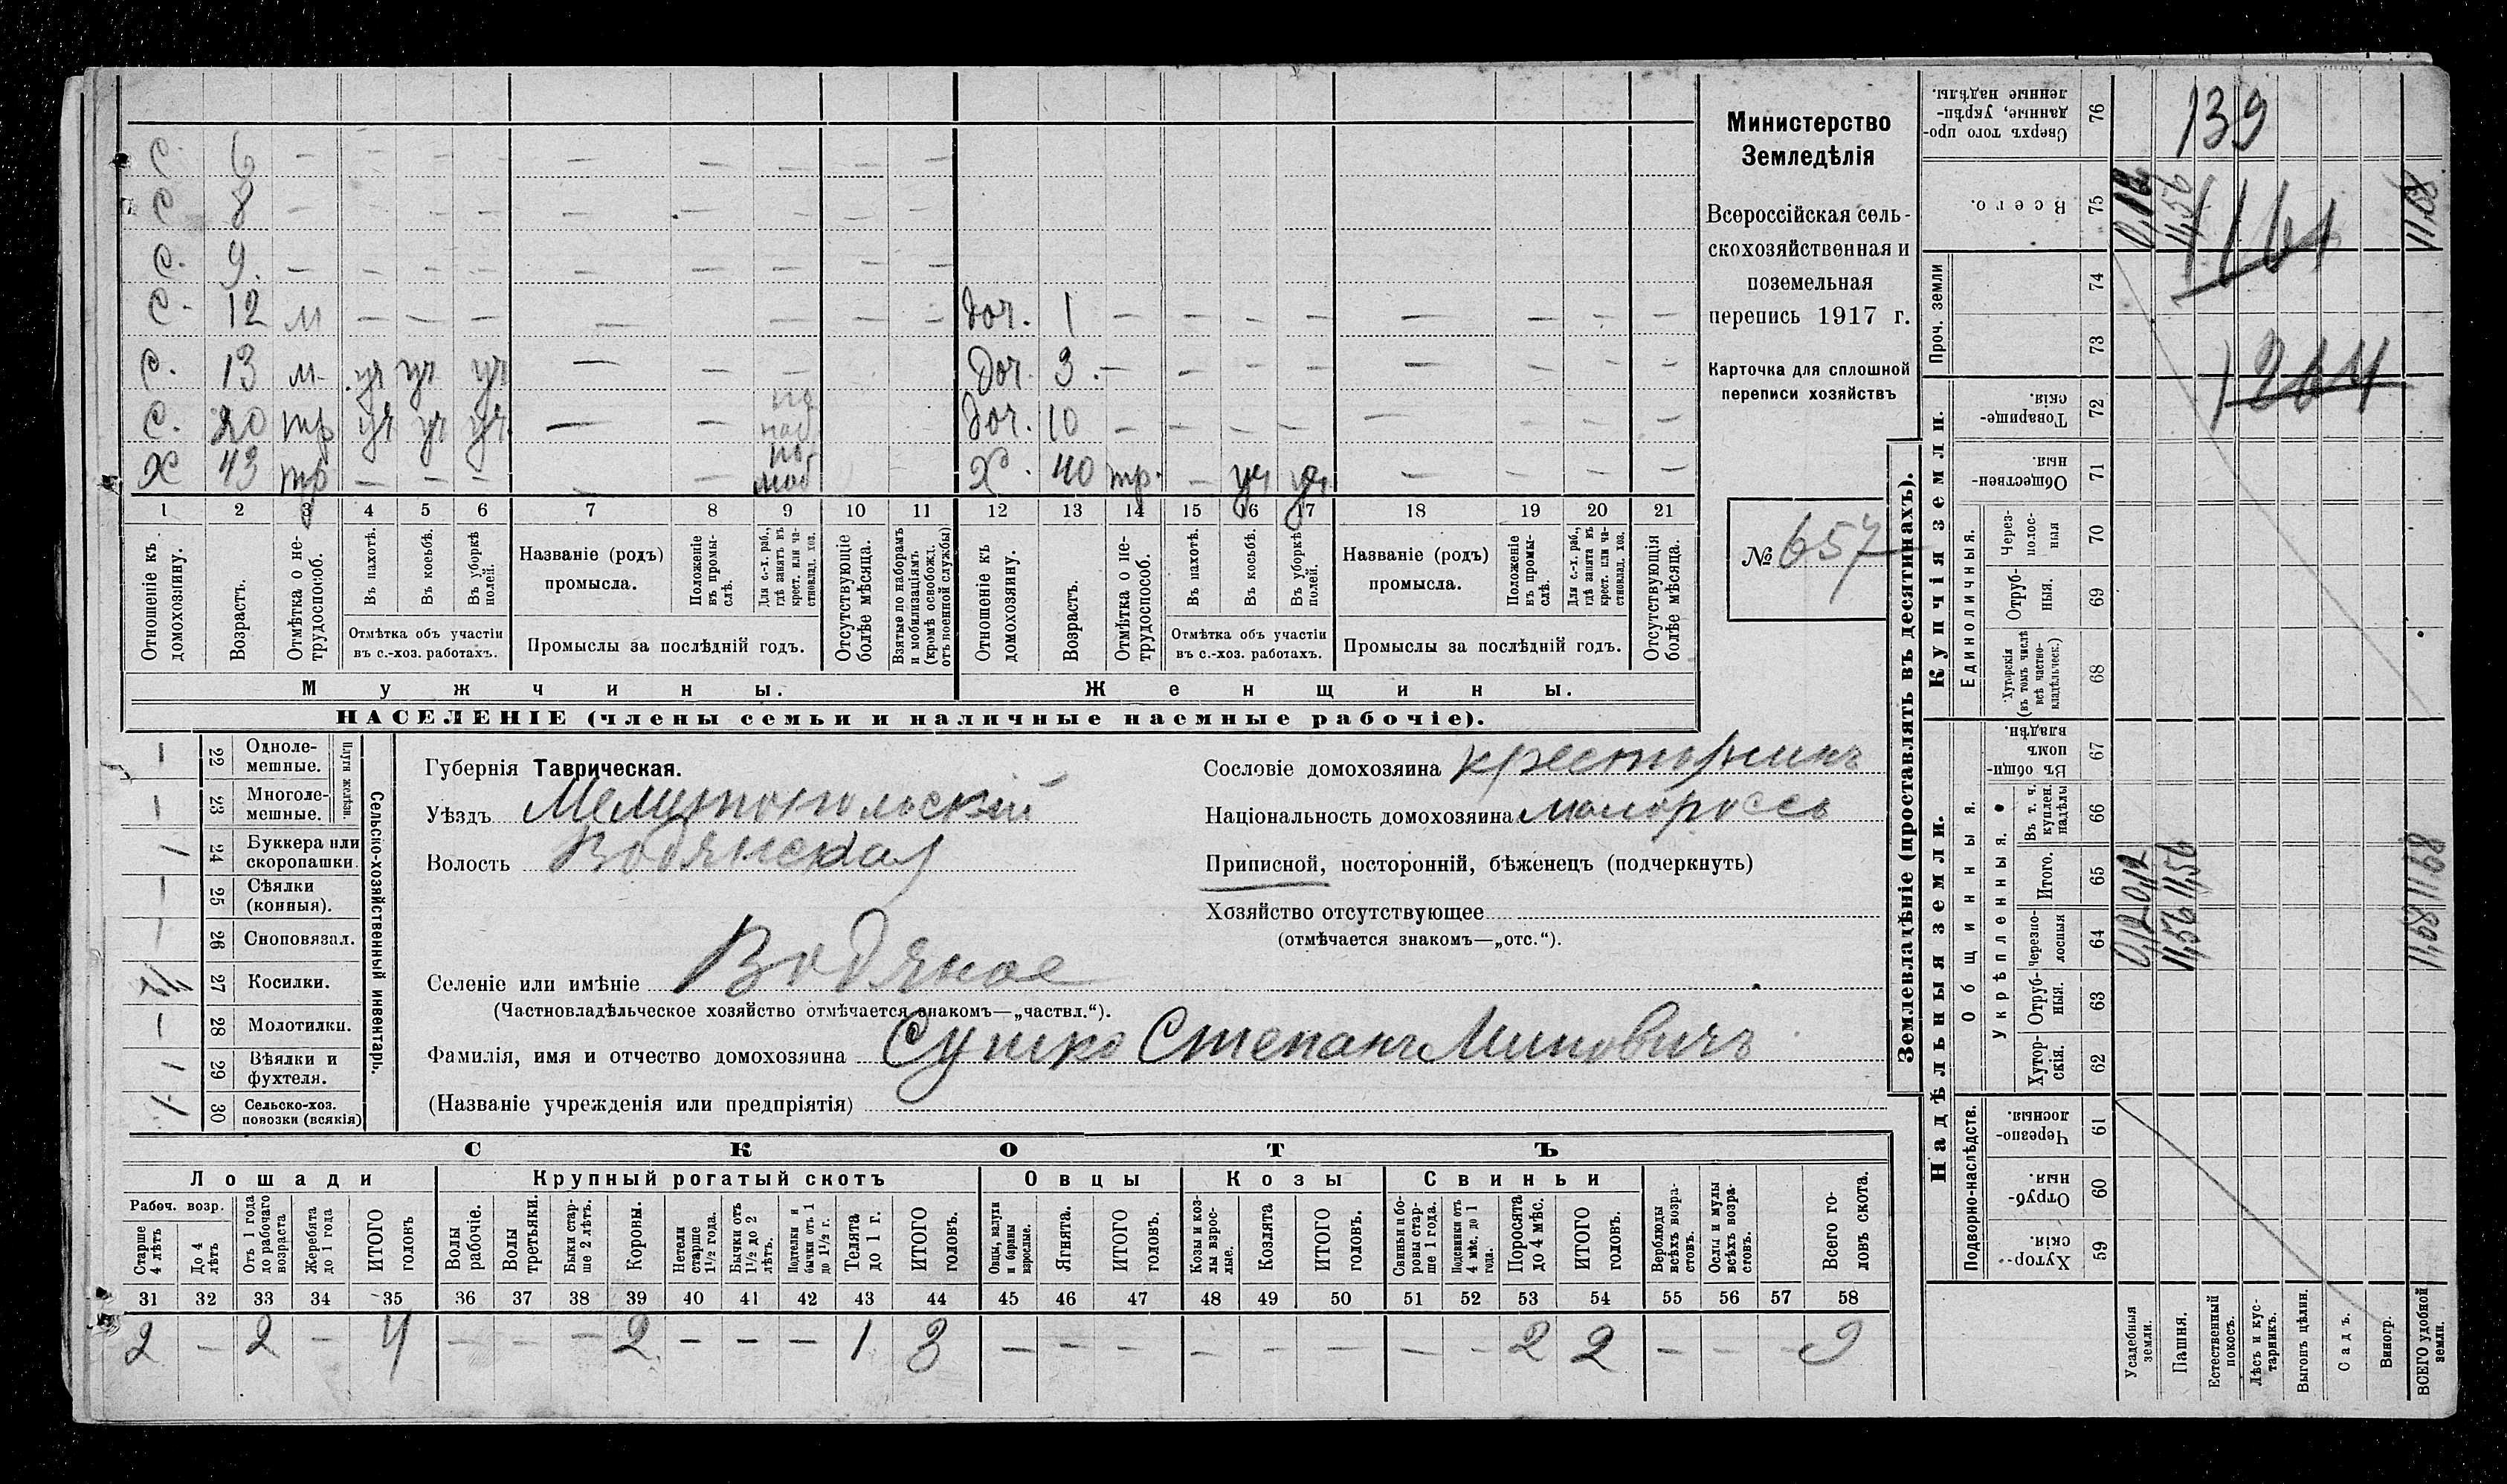 Министерство
Земледѣлія
Всероссійская сель-
скохозяйственная и
поземельная
перепись 1917 г.
Карточка для сплошной
переписи хозяйствъ
№ 657
С. 6 — — — — — — — — —
С 8 — — — — — — — — —
С. 9. — — — — — — — — —
С. 12 м — — — — — — — —
Доч. 1 — — — — — — — —
С. 13 м. уч уч уч — — —
Доч. 3. — — — — — — — —
С. 20 тр уч уч уч. — —
Доч. 10 — — — — — — — —
Х 43 тр — — — — — моб
Х. 40 тр. — уч уч. — — — —
1 2 3 4 5 6 7 8 9 10 11 12 13 14 15 16 17 18 19 20 21
Отношеніе къ домохозяину.
Возрастъ.
Отмѣтка о не-трудоспособ.
Въ пахотѣ.
Въ косьбѣ.
Въ уборкѣ полей.
Отмѣтка объ участіи
въ с.-хоз. работахъ.
Названіе (родъ)
промысла.
Положеніе въ промы-слѣ.
Для с.-х. раб., гдѣ занятъ въ крест. или ча-стновлад. хоз.
Промыслы за послѣдній годъ.
Отсутствующіе болѣе мѣсяца.
Взятые по наборамъ и мобилизаціямъ (кромѣ освобожд. отъ военной службы)
Отношеніе къ домохозяину.
Возрастъ.
Отмѣтка о не-трудоспособ.
Въ пахотѣ.
Въ косьбѣ.
Въ уборкѣ полей.
Отмѣтка объ участіи
въ с.-хоз. работахъ.
Названіе (родъ)
промысла.
Положеніе въ промы-слѣ.
Для с.-х. раб., гдѣ занята въ крест. или ча-стновлад. хоз.
Промыслы за послѣдній годъ.
Отсутствующія болѣе мѣсяца.
Мужчины.
Женщины.
НАСЕЛЕНІЕ (члены семьи и наличные наемные рабочіе).
Сельско-хозяйственный инвентарь.
Плуги желѣзн.
— 22 Одноле-мешные.
— 23 Многоле-мешные.
1 24 Буккера или скоропашки.
— 25 Сѣялки (конныя).
— 26 Сноповязал.
27 Косилки.
— 28 Молотилки.
1 29 Вѣялки и фухтеля.
1 30 Сельско-хоз. повозки (всякія)
Губернія Таврическая.
Уѣздъ Мелитопольскій
Волость Водянская
Селеніе или имѣніе Водяное
(Частновладѣльческое хозяйство отмѣчается знакомъ—„частвл.“).
Фамилія, имя и отчество домохозяина Сушко Степанъ Миновичъ
(Названіе учрежденія или предпріятія)
Сословіе домохозяина крестьянинъ
Національность домохозяина малороссъ
Приписной, посторонній, бѣженецъ (подчеркнуть)
Хозяйство отсутствующее
(отмѣчается знакомъ—„отс.“).
СКОТЪ
Лошади
Крупный рогатый скотъ
Овцы
Козы
Свиньи
Рабоч. возр.
Старше 4 лѣтъ
До 4 лѣтъ
Отъ 1 года до рабочаго возраста
Жеребята до 1 года
ИТОГО головъ
Волы рабочіе.
Волы третьяки.
Быки стар-ше 2 лѣтъ.
Коровы.
Нетели старше 1½ года.
Бычки отъ 1½ до 2 лѣтъ.
Подтелки и бычки отъ 1 до 1½ г.
Телята до 1 г.
ИТОГО головъ.
Овцы, валухи и бараны взрослые.
Ягнята.
ИТОГО головъ.
Козы и коз-лы взрос-лые.
Козлята
ИТОГО головъ.
Свиньи и бо-ровы стар-ше 1 года.
Подсвинки отъ 4 мѣс. до 1 года.
Поросята до 4 мѣс.
ИТОГО головъ.
Верблюды всѣхъ возра-стовъ.
Ослы и мулы всѣхъ возра-стовъ.
Всего го-ловъ скота.
31 32 33 34 35 36 37 38 39 40 41 42 43 44 45 46 47 48 49 50 51 52 53 54 55 56 57 58
2 — 2 — 4 — — — 2 — — — 1 3 — — — — — — — — 2 2 — — — 9
Землевладѣніе (проставлять въ десятинахъ).
Купчія земли.
Надѣльныя земли.
Сверхъ того про-данные, укрѣп-ленные надѣлы. 76
139
Всего. 75
0,12
11,56
1161
11,68
Проч. земли
74
73
1264
Товарище-скія. 72
Обществен-ныя. 71
Единоличныя.
Через-полос-ныя 70
Отруб-ныя. 69
Хуторскія (въ томъ числѣ всѣ частно-владѣльческ.) 68
Общинныя.
Въ общи-номъ владѣн. 67
Укрѣпленныя.
Въ т. ч. куплен. надѣлы 66
Итого. 65
0,12
11,56
11,68
Черезпо-лосныя 64
0,12
11,56
11,68
Отруб-ныя. 63
Хутор-скія. 62
Подворно-наслѣдств.
Черезпо-лосныя. 61
Отруб-ныя 60
Хутор-скія. 59
Усадебныя земли.
Пашня.
Естественный покосъ.
Лѣсъ и кус-тарникъ.
Выгонъ цѣлин.
Садъ.
Виногр.
ВСЕГО удобной земли.